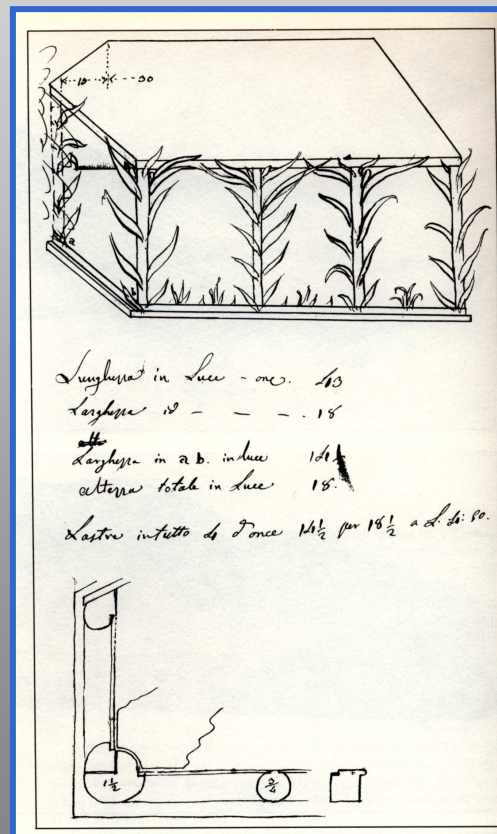 15 30
a
b
Lunghezza in Luce - onc. 43
Larghezza id - - - . 18
Larghezza in a b. in luce 14
altezza totale in Luce 18.
Lastre in tutto 4 d'once 14½ per 18½ a L. 4: 50.
1½
¾